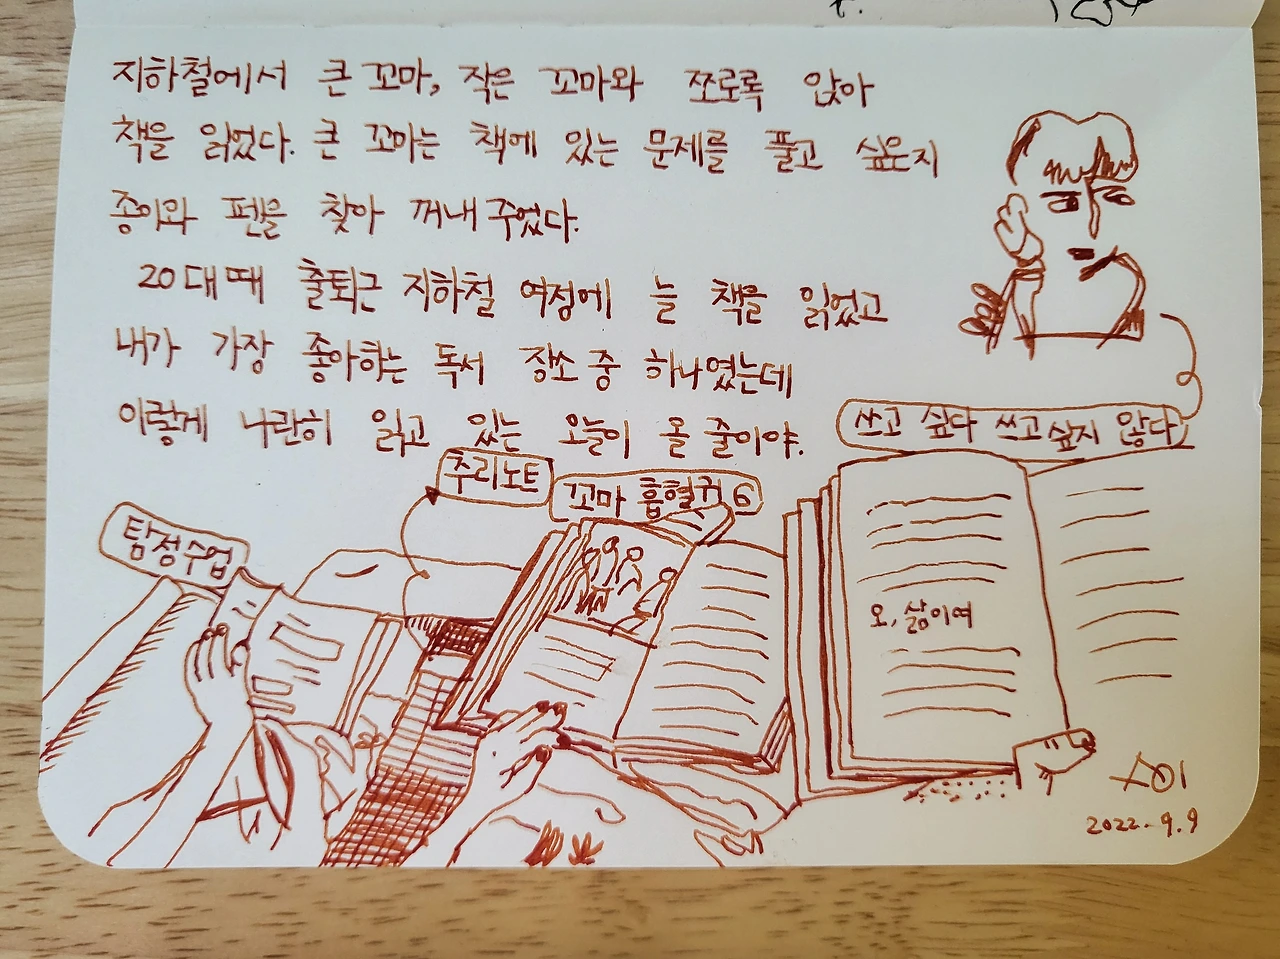 지하철에서 큰 꼬마, 작은 꼬마와 쪼로록 앉아
책을 읽었다. 큰 꼬마는 책에 있는 문제를 풀고 싶은지
종이와 펜을 찾아 꺼내주었다.
20대때 출퇴근 지하철 여정에 늘 책을 읽었고
내가 가장 좋아하는 독서 장소 중 하나였는데
이렇게 나란히 읽고 있는 오늘이 올 줄이야.
쓰고 싶다 쓰고 싶지 않다
추리노트
꼬마 흡혈귀 6
탐정수업
오, 삶이여
2022. 9. 9